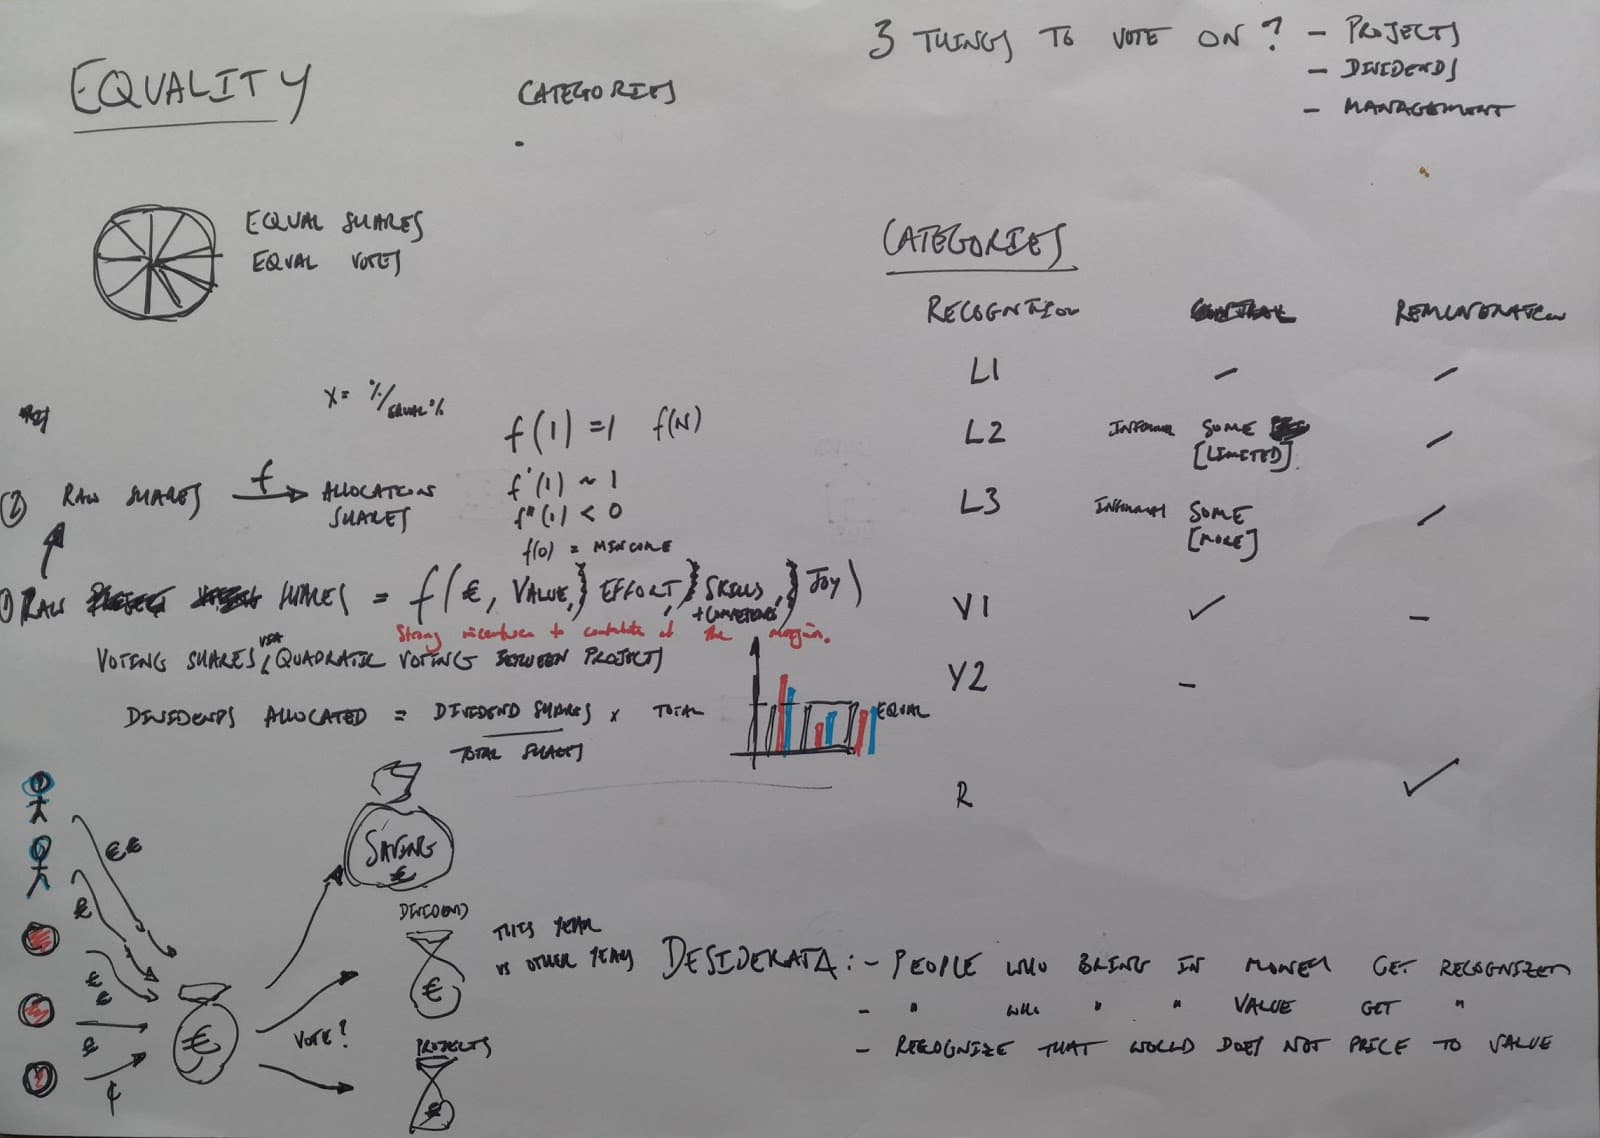 EQUALITY
CATEGORIES
3 THINGS TO VOTE ON? - PROJECTS
- DIVIDENDS
- MANAGEMENT
EQUAL SHARES
EQUAL VOTES
X = %/EQUAL %
f(1) = 1 f(N)
f'(1) ~ 1
f"(1) < 0
f(0) = MINCOME
② RAW SHARES f → ALLOCATIONS
SHARES
① RAW SHARES = f(€, VALUE,} EFFORT,} SKILLS,} JOY)
+ COMPETENCE
Strong incentives to contribute at the margin.
VOTING SHARES VIA QUADRATIC VOTING BETWEEN PROJECTS
DIVIDENDS ALLOCATED = DIVIDEND SHARES × TOTAL
TOTAL SHARES
EQUAL
€€
€
€
€
€
€
€
VOTE?
SAVING
€
DIVIDEND
€
THIS YEAR
VS OTHER YEARS
PROJECTS
€
CATEGORIES
RECOGNTION REMUNERATION
L1 - -
L2 INFORMAL SOME -
[LIMITED]
L3 INFORMAL SOME -
[MORE]
Y1 ✓ -
Y2 -
R ✓
DESIDERATA: - PEOPLE WHO BRING IN MONEY GET RECOGNIZED
- " WHO " " VALUE GET "
- RECOGNIZE THAT WORLD DOES NOT PRICE TO VALUE